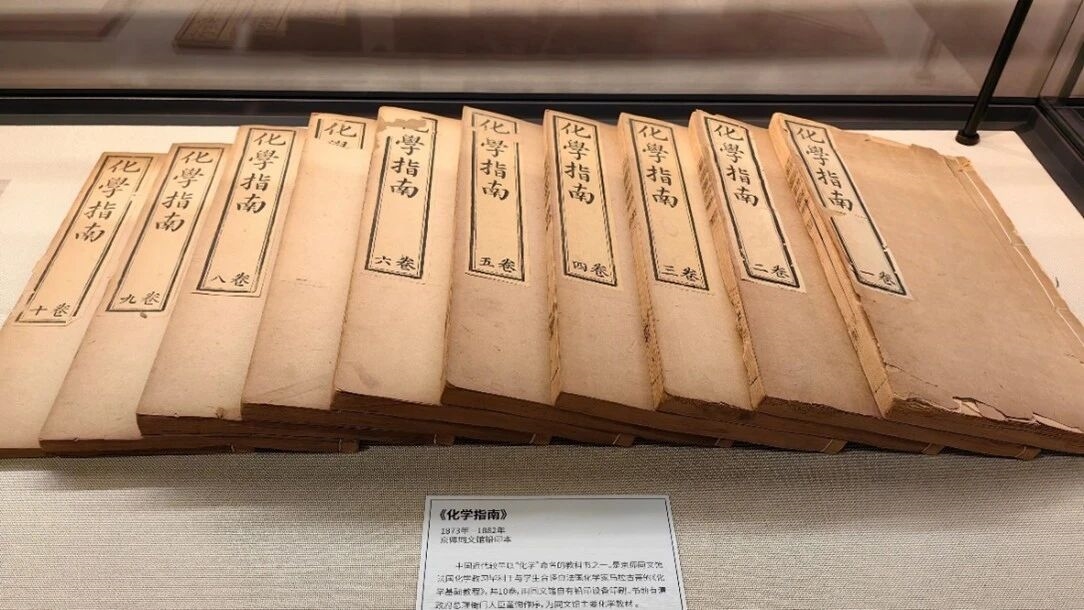 化學指南
卷一
化學指南
卷二
化學指南
卷三
化學指南
卷四
化學指南
卷五
化學指南
卷六
化
化學指南
卷八
化學指南
卷九
化學指南
卷十
《化学指南》
1873年—1882年
京师同文馆铅印本
中国近代较早以“化学”命名的教科书之一，是京师同文馆
法国化学教习毕利干与学生合译自法国化学家马拉古蒂的《化
学基础教程》，共10卷，用同文馆自有铅印设备印刷。书前有清
政府总理衙门大臣董恂作序，为同文馆主要化学教材。